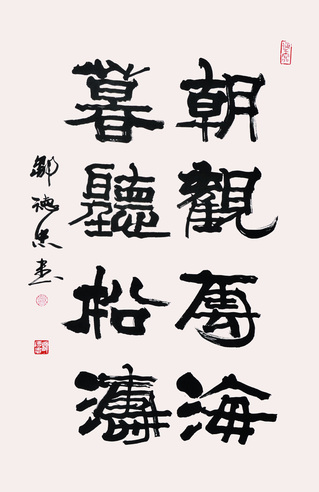 朝觀雲海
暮聽松濤
鄒德忠書